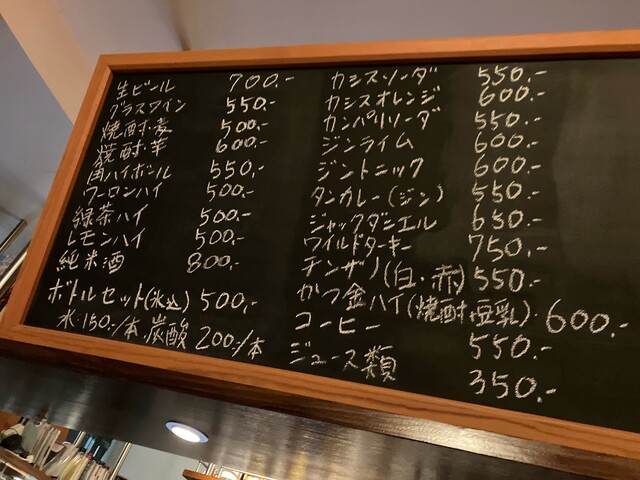 生ビール 700.-
グラスワイン 550.-
焼酎・麦 500.-
焼酎・芋 600.-
角ハイボール 550.-
ウーロンハイ 500.-
緑茶ハイ 500.-
レモンハイ 500.-
純米酒 800.-
ボトルセット(氷込) 500.-
氷:150.-/本 炭酸 200.-/本
カシスソーダ 550.-
カシスオレンジ 600.-
カンパリソーダ 550.-
ジンライム 600.-
ジントニック 600.-
タンカレー(ジン) 550.-
ジャックダニエル 650.-
ワイルドターキー 750.-
チンザノ(白・赤) 550.-
かつ金ハイ(焼酎+豆乳)・600.-
コーヒー 550.-
ジュース類 350.-